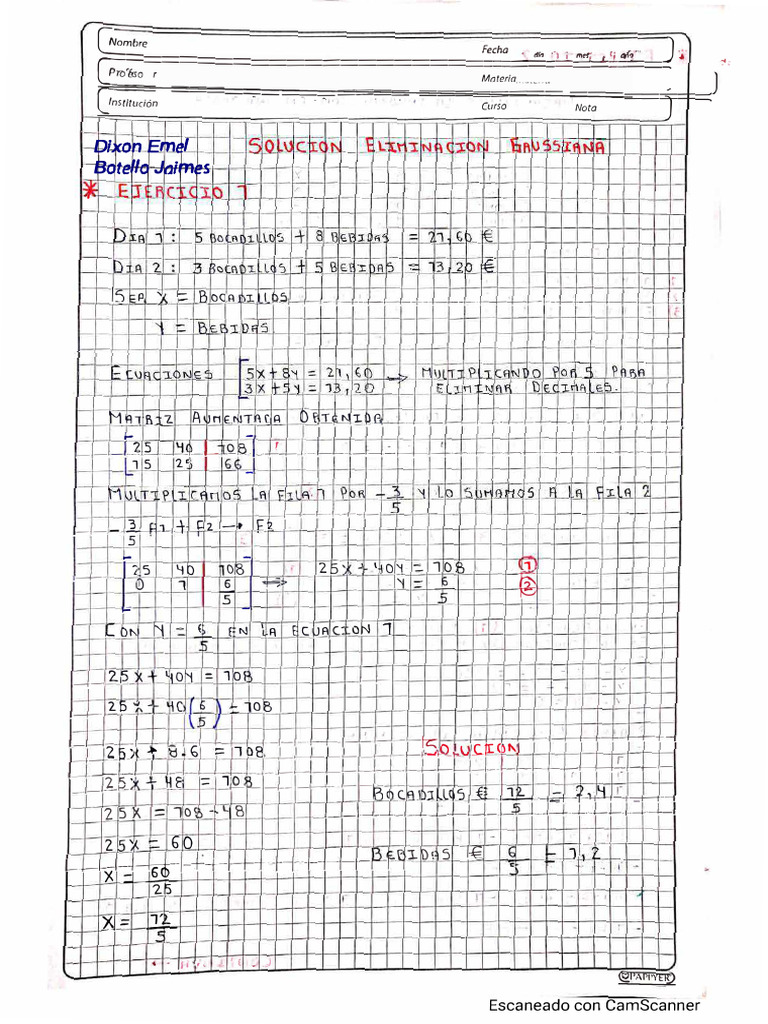 Nombre
Fecha día mes año
Profesor
Materia
Institución
Curso Nota
Dixon Emel
Botello Jaimes
SOLUCION ELIMINACION GAUSSIANA
* EJERCICIO 1
DIA 1: 5 BOCADILLOS + 8 BEBIDAS = 21,60 €
DIA 2: 3 BOCADILLOS + 5 BEBIDAS = 13,20 €
SEA X = BOCADILLOS
Y = BEBIDAS
ECUACIONES [5X+8Y = 21,60 → MULTIPLICANDO POR 5 PARA
3X+5Y = 13,20 ELIMINAR DECIMALES.
MATRIZ AUMENTADA OBTENIDA
25 40 | 108
15 25 | 66
MULTIPLICAMOS LA FILA 1 POR -3/5 Y LO SUMAMOS A LA FILA 2
-3/5 F1 + F2 → F2
25 40 | 108 25X + 40Y = 108 ①
0 1 | 6/5 ⇒ Y = 6/5 ②
CON Y = 6/5 EN LA ECUACION 1
25X + 40Y = 108
25X + 40(6/5) = 108
25X + 8.6 = 108
SOLUCION
25X + 48 = 108
BOCADILLOS € 12/5 = 2,4
25X = 108 - 48
25X = 60
BEBIDAS € 6/5 = 1,2
X = 60/25
X = 12/5
PAPPYER
Escaneado con CamScanner